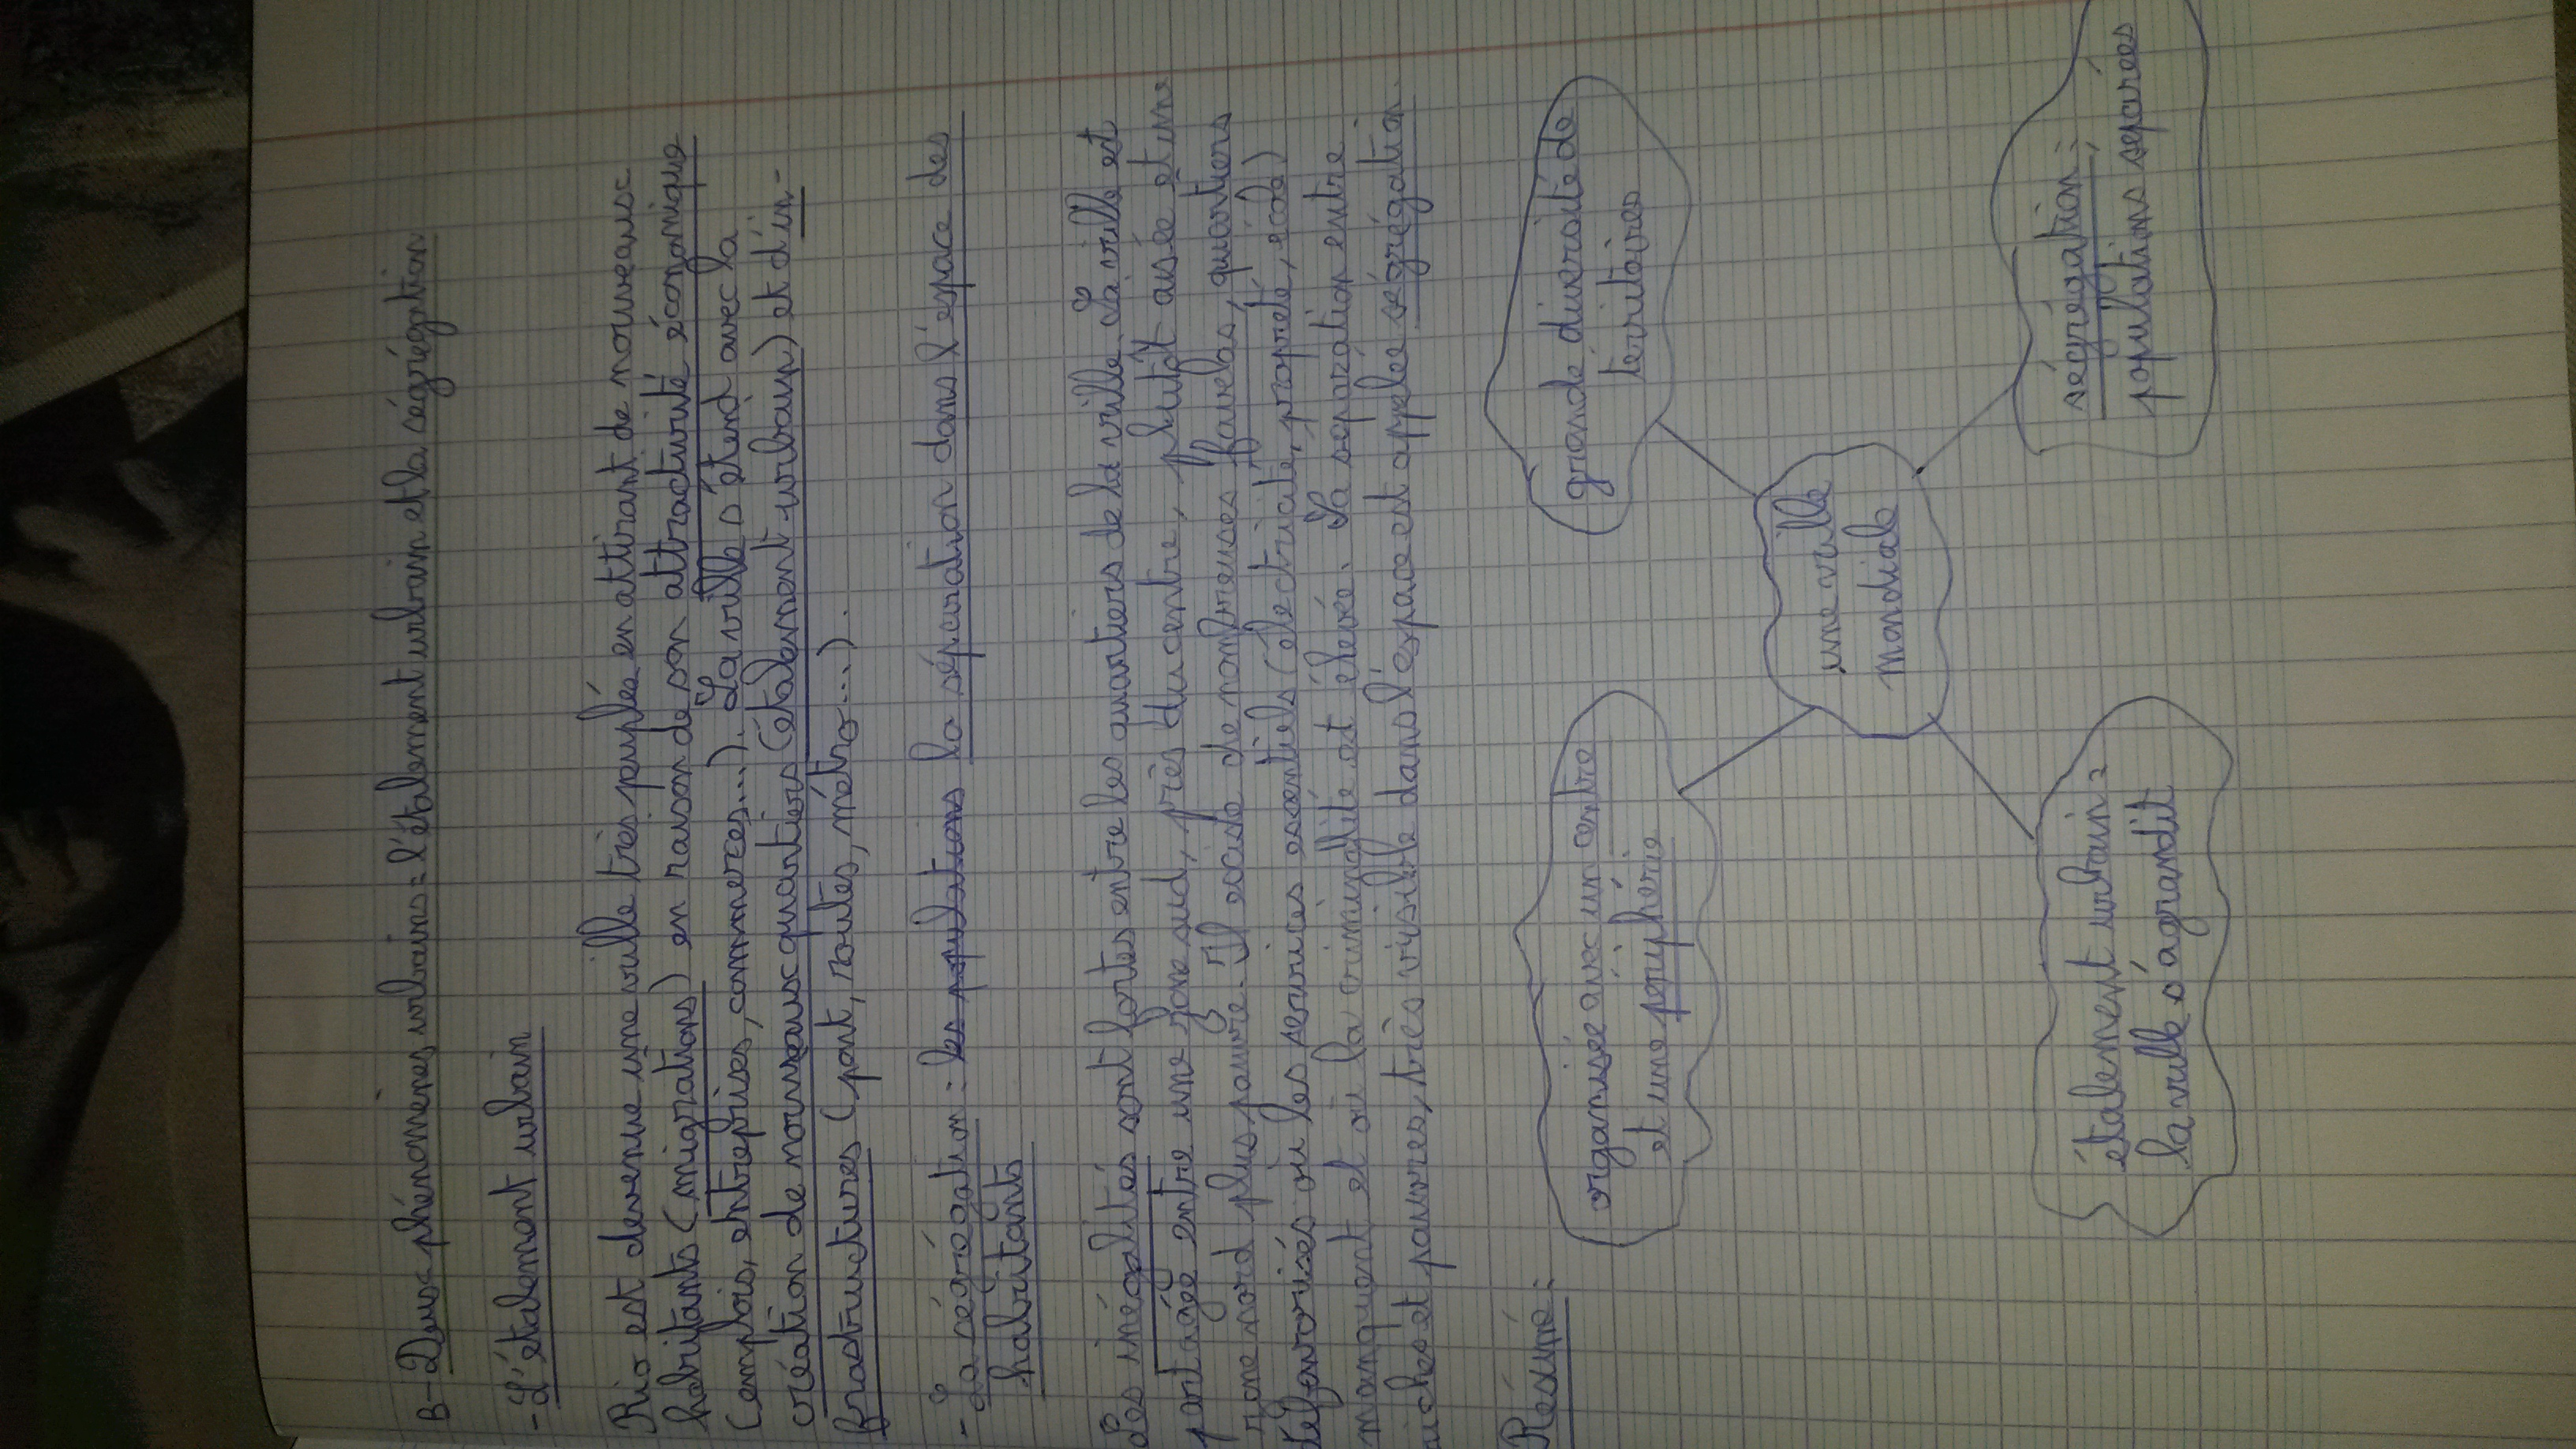 B- Deux phénomènes urbains : l'étalement urbain et la ségrégation
- L'étalement urbain
Rio est devenue une ville très peuplée en attirant de nouveaux
habitants (migrations) en raison de son attractivité économique
(emplois, entreprises, commerces...). La ville s'étend avec la
création de nouveaux quartiers (étalement urbain) et d'in-
frastructures (pont, routes, métro....).
- La ségrégation : les populations la séparation dans l'espace des
habitants
Les inégalités sont fortes entre les quartiers de la ville. La ville est
partagée entre une zone sud, près du centre, plutôt aisée et une
zone nord plus pauvre. Il existe de nombreuses favelas, quartiers
défavorisés où les services essentiels (électricité, propreté, école)
manquent et où la criminalité est élevée. La séparation entre
riches et pauvres, très visible dans l'espace est appelée ségrégation.
Résumé :
organisée avec un centre
et une périphérie
grande diversité de
territoires
une ville
mondiale
étalement urbain :
la ville s'agrandit
ségrégation :
populations séparées